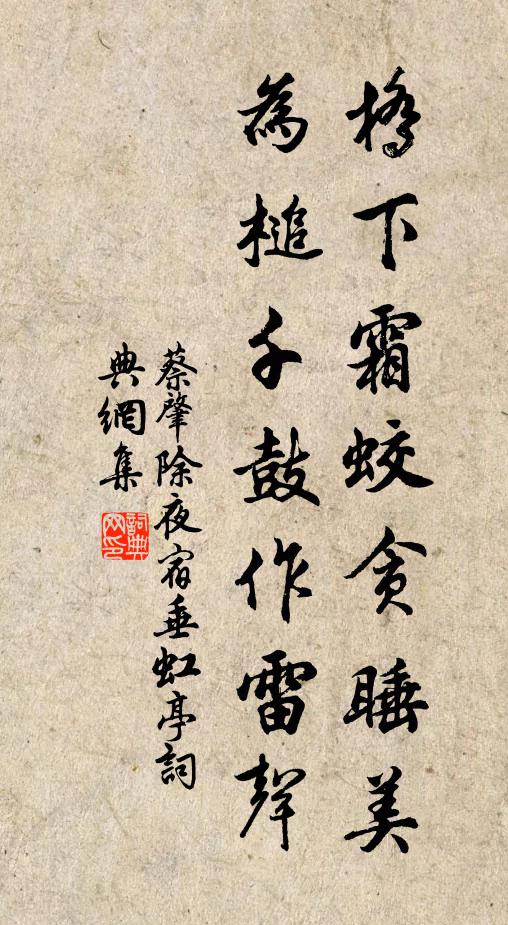 橋下霜蛟貪睡美
為槌千鼓作雷聲
蔡肇除夜宿垂虹亭詞
典網集
詞典
网印